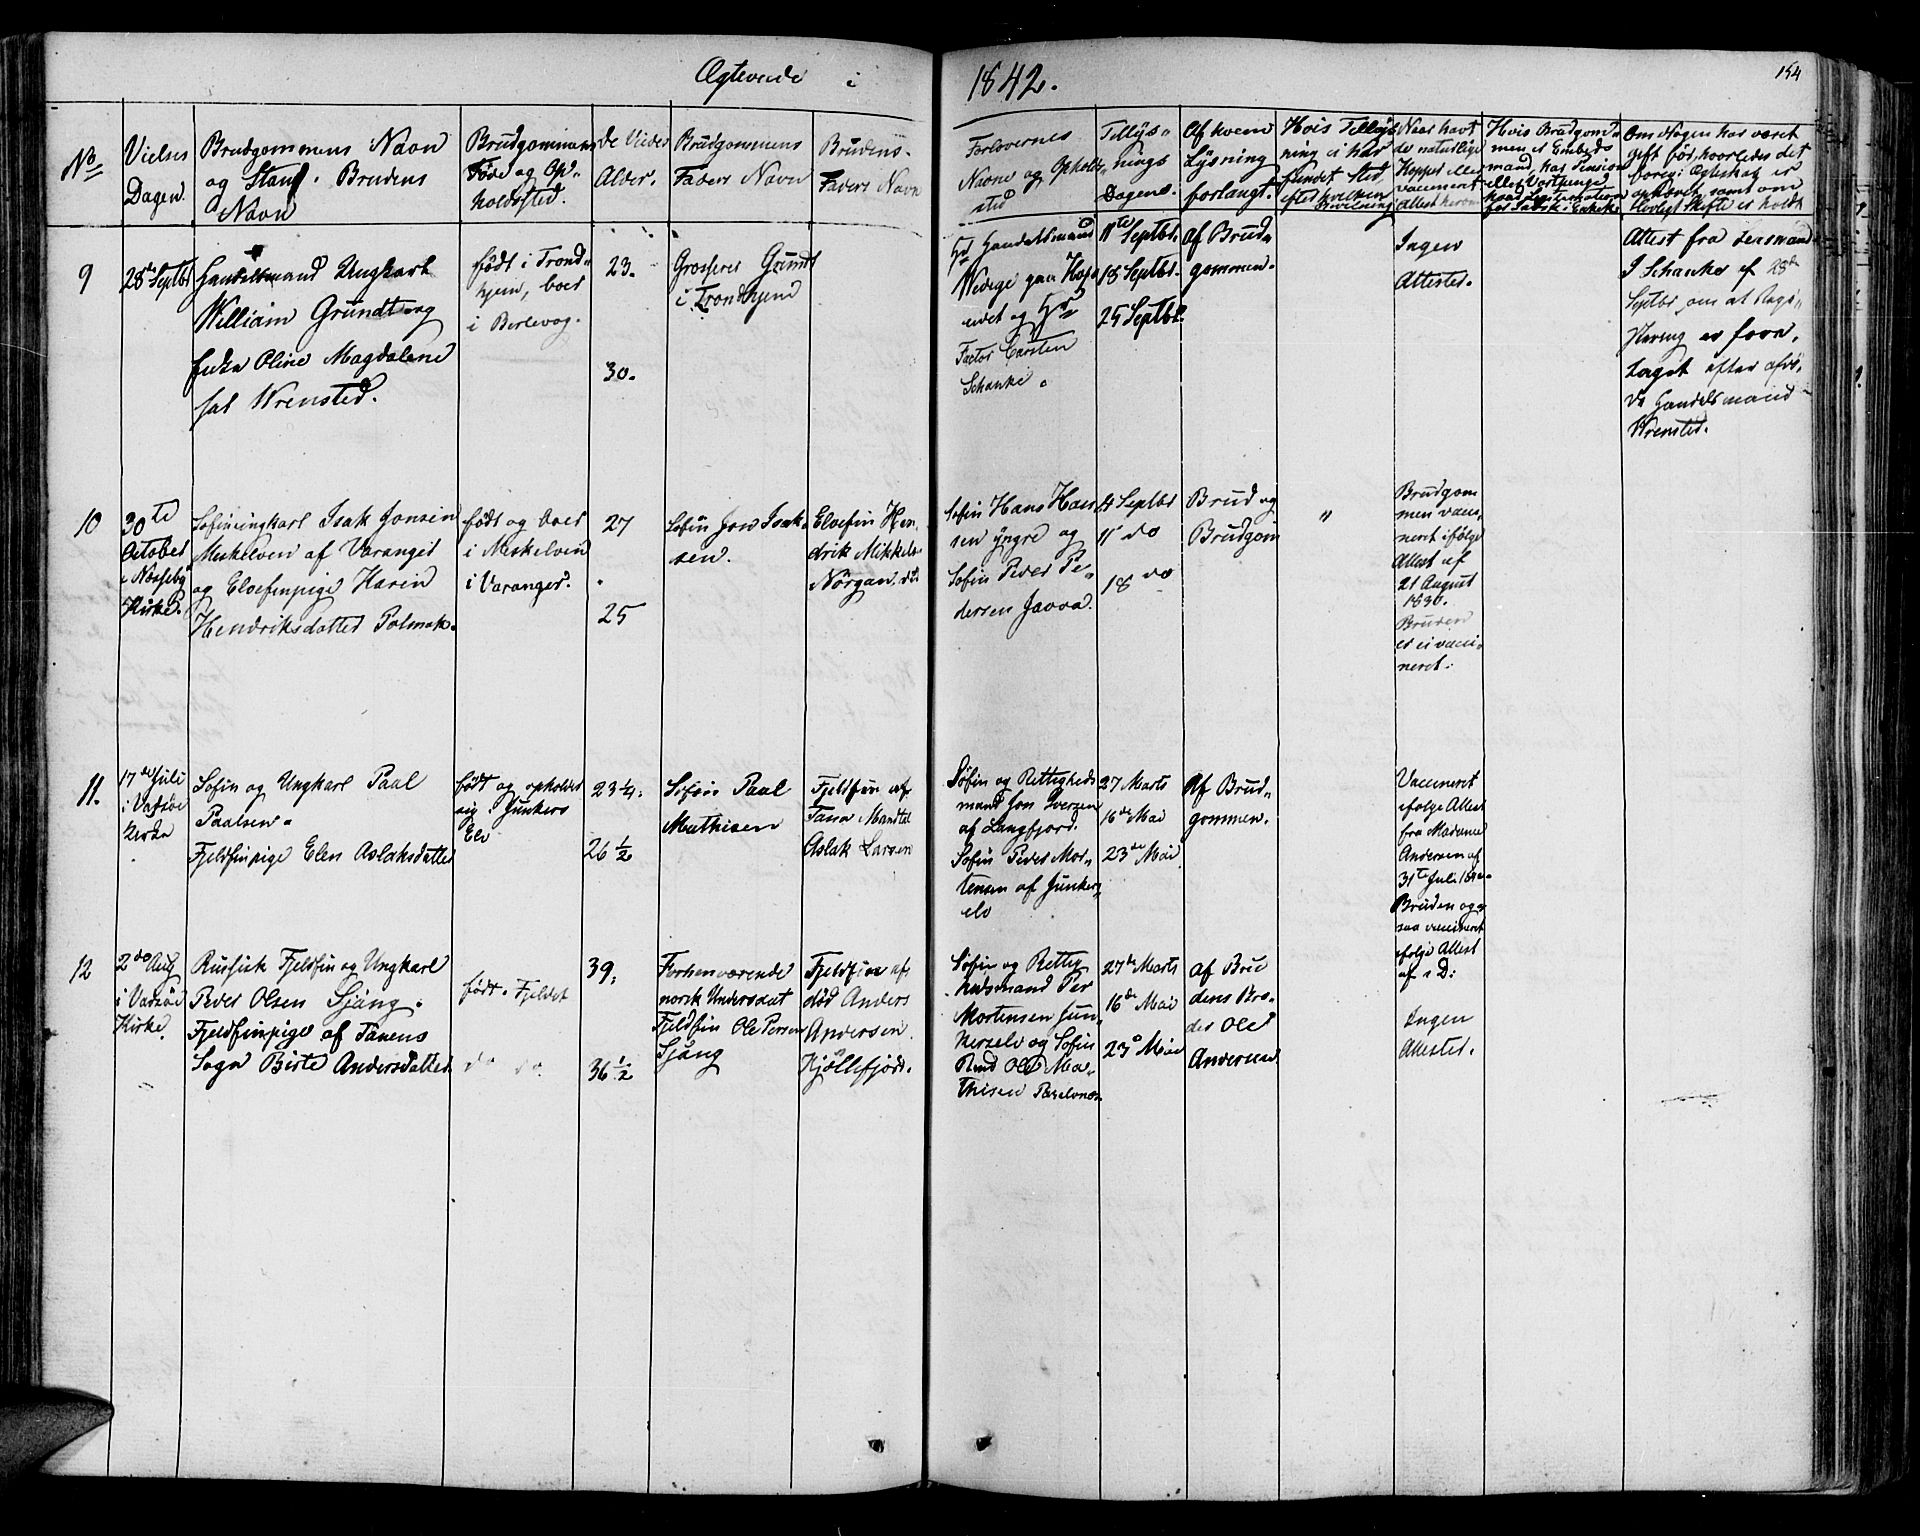 Ægteviede i 1842.
154
No
Vielses
Dagen.
Brudgommens Navn
og Stand. Brudens
Navn
Brudgommens
Føde og Op-
holdssted.
de Viedes
Alder.
Brudgommens
Faders Navn
Brudens
Faders Navn
Forlovernes
Navne og Opholds
sted
Tillys-
nings
Dagene.
Af hvem
Lysning
forlangt.
Hvis Tillys
ning ei har
fundet Sted,
efter hvilken
Bevilning
Naar havt
de naturlige
Kopper eller
vaccineret
Attest herom
Hvis Brudgom-
men er Embeds
mand, har Pension
Om Nogen har været
gift før, hvorledes det
forrige Ægteskab er
ophævet samt om
lovligt Skifte er holdt
9
28de Septbr
Handelsmand Ungkarl
William Grundt og
Enke Oline Magdalene
sal Wrensted.
født i Trond-
hjem, boer
i Berlevog.
23.
30.
Grosserer Grundt
i Trondhjem
Hr Handelsmand
Wedege paa Hop
endet og Hr
Factor Carsten
Schanke.
11te Septbr.
18 Septbr.
25 Septbr.
Af Brud-
gommen.
Ingen
Attester.
Attest fra Lensmand
I Schanke af 28de
Septbr, om at Regi-
strering er fore-
taget efter afdø-
de Handelsmand
Wrensted.
10
30te
October
i Næsseby
Kirke.
Søfinungkarl Isak Jonsen
Meskelven af Varanger
og Elvefinpige Karen
Hendriksdatter Polmak.
født og boer
i Meskelven
i Varanger.
27
25
Søfin Jon Isak-
sen.
Elvefin Hen-
drik Mikkels-
Nørgan
Søfin Hans Han
sen yngre og
Søfin Peder Pe-
dersen Javva.
4 Septbr
11 do
18 do
Brud og
Brudgom
"
Brudgom
men vacci-
neret ifølge
Attest af
21 August
1830.
Bruden
er ei vacci-
neret.
11.
17de Juli
i Vadsøe
Kirke
Søfin og Ungkarl Paal
Paalsen.
Fjeldfinpige Elen Aslaksdatter
født og opholder
sig i Junkers
Elv
23 1/4.
26 1/2
Søfin Paal
Mathisen
Fjeldfin af
Tana Mandtal
Aslak Larsen
Søfin og Rettigheds
mand Jon Iversen
af Langfjord.
Søfin Peder Mor-
tensen af Junkers
elv
27 Marts
16de Mai
23de Mai
Af Brud-
gommen.
Vaccineret
ifølge Attest
fra Madame
Andersen af
31te Juli
Bruden og-
saa vaccineret
ifølge Attest
af s D:
12
2den Aug
i Vadsøe
Kirke.
Russisk Fjeldfin og Ungkarl
Peder Olsen Sjäng.
Fjeldfinpige af Tanens
Sogn Birte Andersdatter
født i Fjeldet
do do
39.
36 1/2
Forhenværende
norsk Undersaat
Fjeldfin Ole Persen
Sjäng
Fjeldfin af-
død Anders
Andersen
Kjøllefjord.
Søfin og Rettig
hedsmand Per
Mortensen Jun-
kerselv og Søfin
Ole Ma-
thisen
27de Marts
16de Mai
23de Mai
af Bru
dens Bro-
der Ole
Andersen
Ingen
Attester.